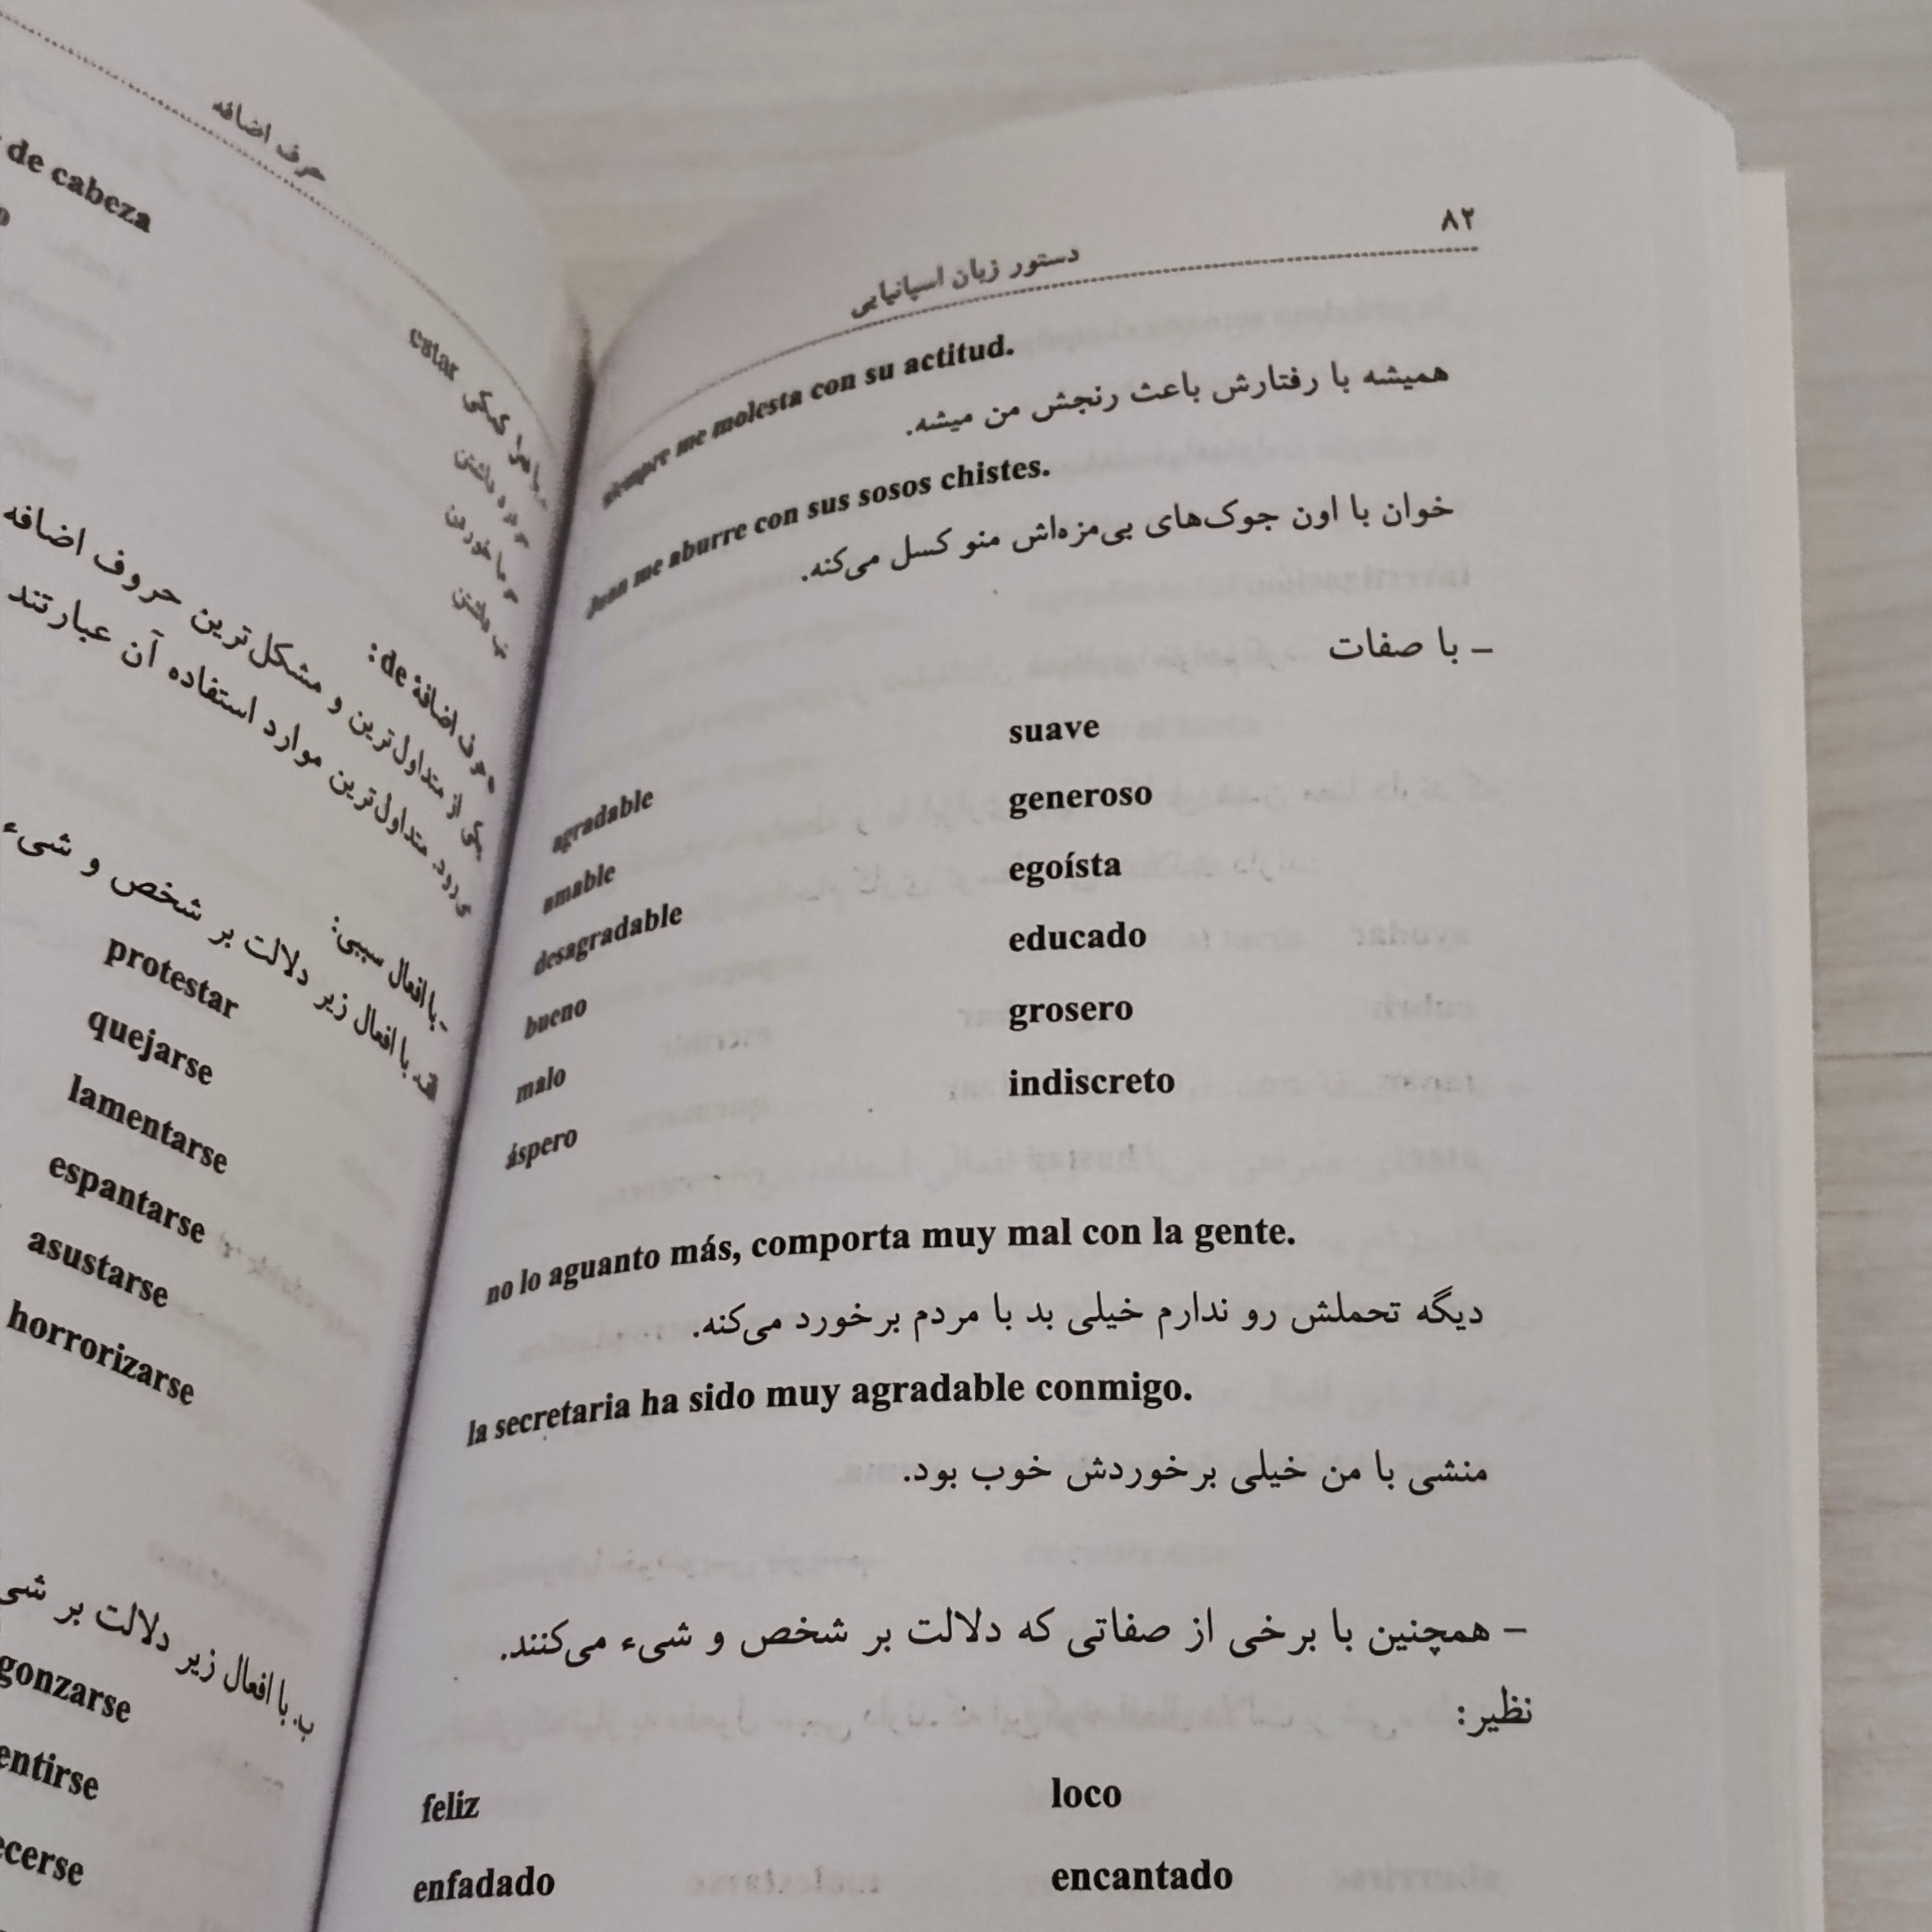 حرف اضافه
de cabeza
estar
حرف اضافهٔ de:
یکی از متداول‌ترین و مشکل‌ترین حروف اضافه
متداول‌ترین موارد استفاده آن عبارتند
- با افعال سببی:
الف. با افعال زیر دلالت بر شخص و شیء
protestar
quejarse
lamentarse
espantarse
asustarse
horrorizarse
ب. با افعال زیر دلالت بر شی
gonzarse
entirse
ecerse
۸۲
دستور زبان اسپانیایی
siempre me molesta con su actitud.
همیشه با رفتارش باعث رنجش من میشه.
Juan me aburre con sus sosos chistes.
خوان با اون جوک‌های بی‌مزه‌اش منو کسل می‌کنه.
– با صفات
agradable suave
amable generoso
desagradable egoísta
bueno educado
malo grosero
áspero indiscreto
no lo aguanto más, comporta muy mal con la gente.
دیگه تحملش رو ندارم خیلی بد با مردم برخورد می‌کنه.
la secretaria ha sido muy agradable conmigo.
منشی با من خیلی برخوردش خوب بود.
– همچنین با برخی از صفاتی که دلالت بر شخص و شیء می‌کنند.
نظیر:
feliz loco
enfadado encantado